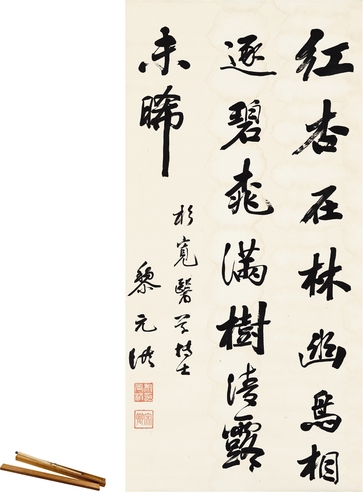 红杏在林幽鸟相
逐碧桃满树清露
未晞
杉寬醫学博士
黎元洪